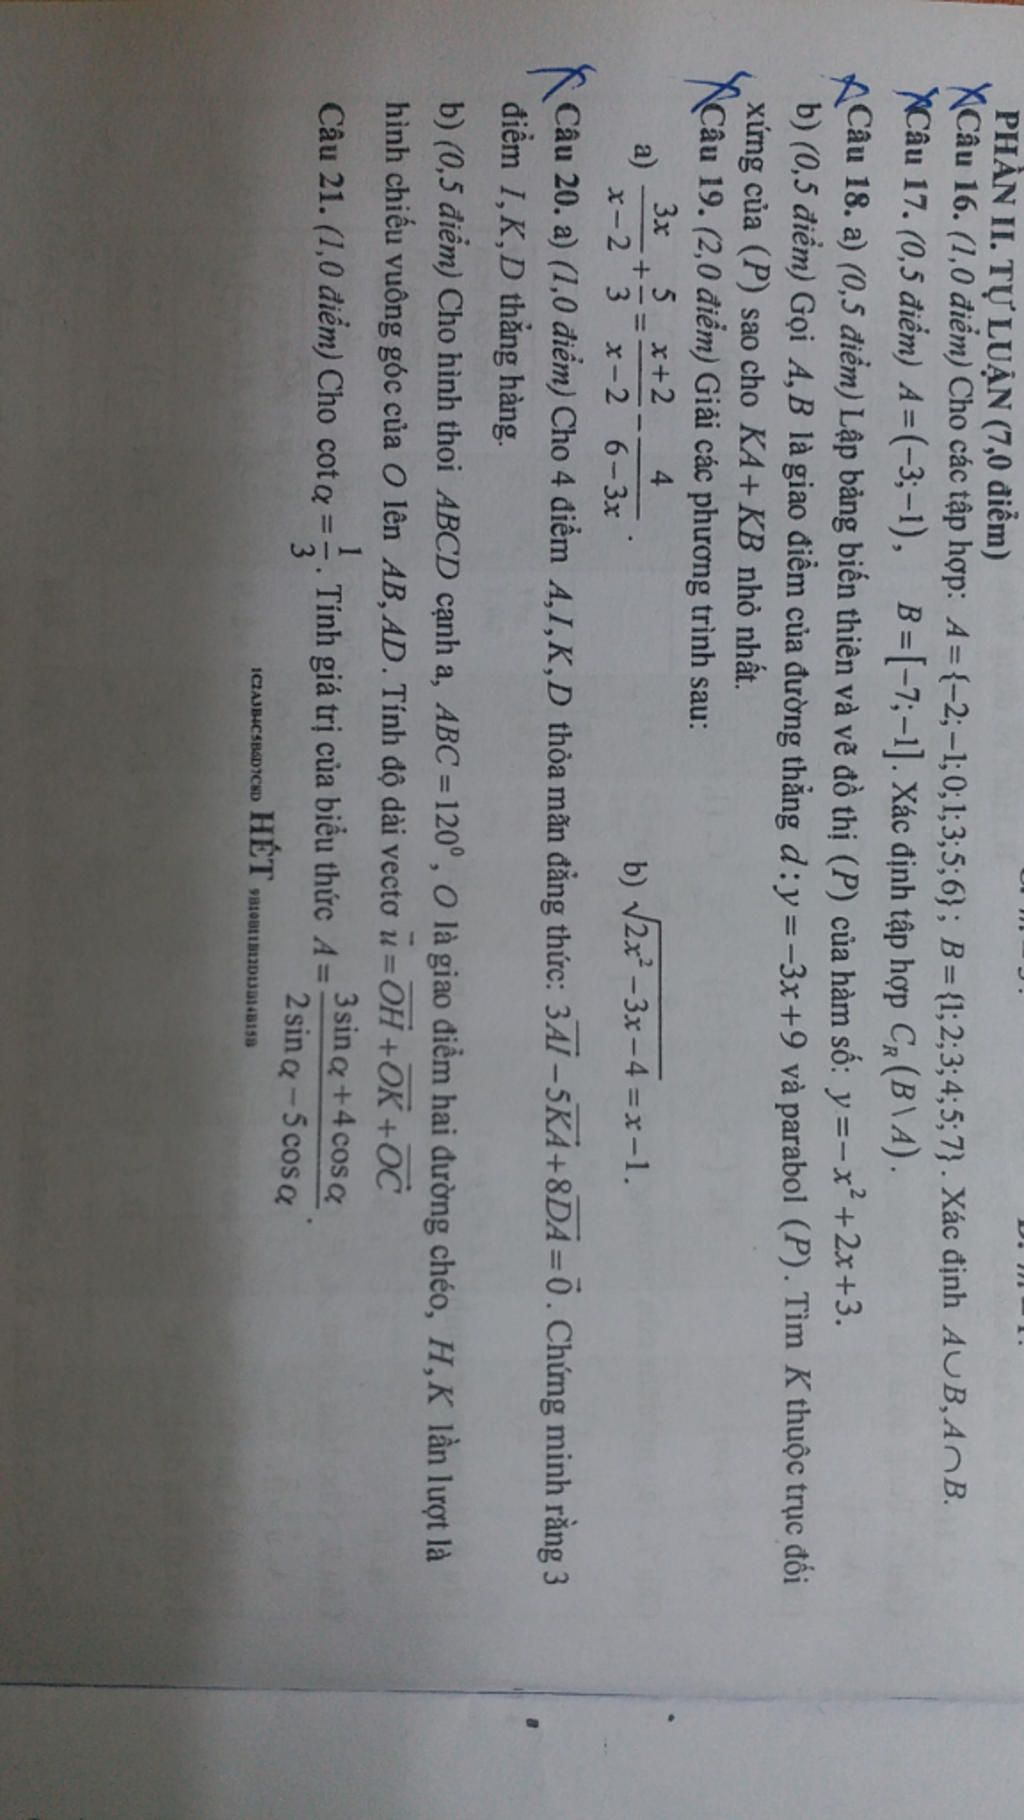 PHẦN II. TỰ LUẬN (7,0 điểm)
Câu 16. (1,0 điểm) Cho các tập hợp: A = {-2;-1;0;1;3;5;6}; B = {1;2;3;4;5;7}. Xác định A∪B, A∩B.
Câu 17. (0,5 điểm) A = (-3;-1), B = [-7;-1]. Xác định tập hợp C_R(B\A).
Câu 18. a) (0,5 điểm) Lập bảng biến thiên và vẽ đồ thị (P) của hàm số: y = -x² + 2x + 3.
b) (0,5 điểm) Gọi A, B là giao điểm của đường thẳng d: y = -3x + 9 và parabol (P). Tìm K thuộc trục đối
xứng của (P) sao cho KA + KB nhỏ nhất.
Câu 19. (2,0 điểm) Giải các phương trình sau:
a) 3x/(x-2) + 5/3 = (x+2)/(x-2) - 4/(6-3x). b) √(2x² - 3x - 4) = x - 1.
Câu 20. a) (1,0 điểm) Cho 4 điểm A, I, K, D thỏa mãn đẳng thức: 3AI⃗ - 5KA⃗ + 8DA⃗ = 0⃗. Chứng minh rằng 3
điểm I, K, D thẳng hàng.
b) (0,5 điểm) Cho hình thoi ABCD cạnh a, ABC = 120⁰, O là giao điểm hai đường chéo, H, K lần lượt là
hình chiếu vuông góc của O lên AB, AD. Tính độ dài vectơ u⃗ = OH⃗ + OK⃗ + OC⃗
Câu 21. (1,0 điểm) Cho cot α = 1/3. Tính giá trị của biểu thức A = (3 sin α + 4 cos α)/(2 sin α - 5 cos α).
1C2A3B4C5B6D7C8D HẾT 9B10B11B12D13B14B15B